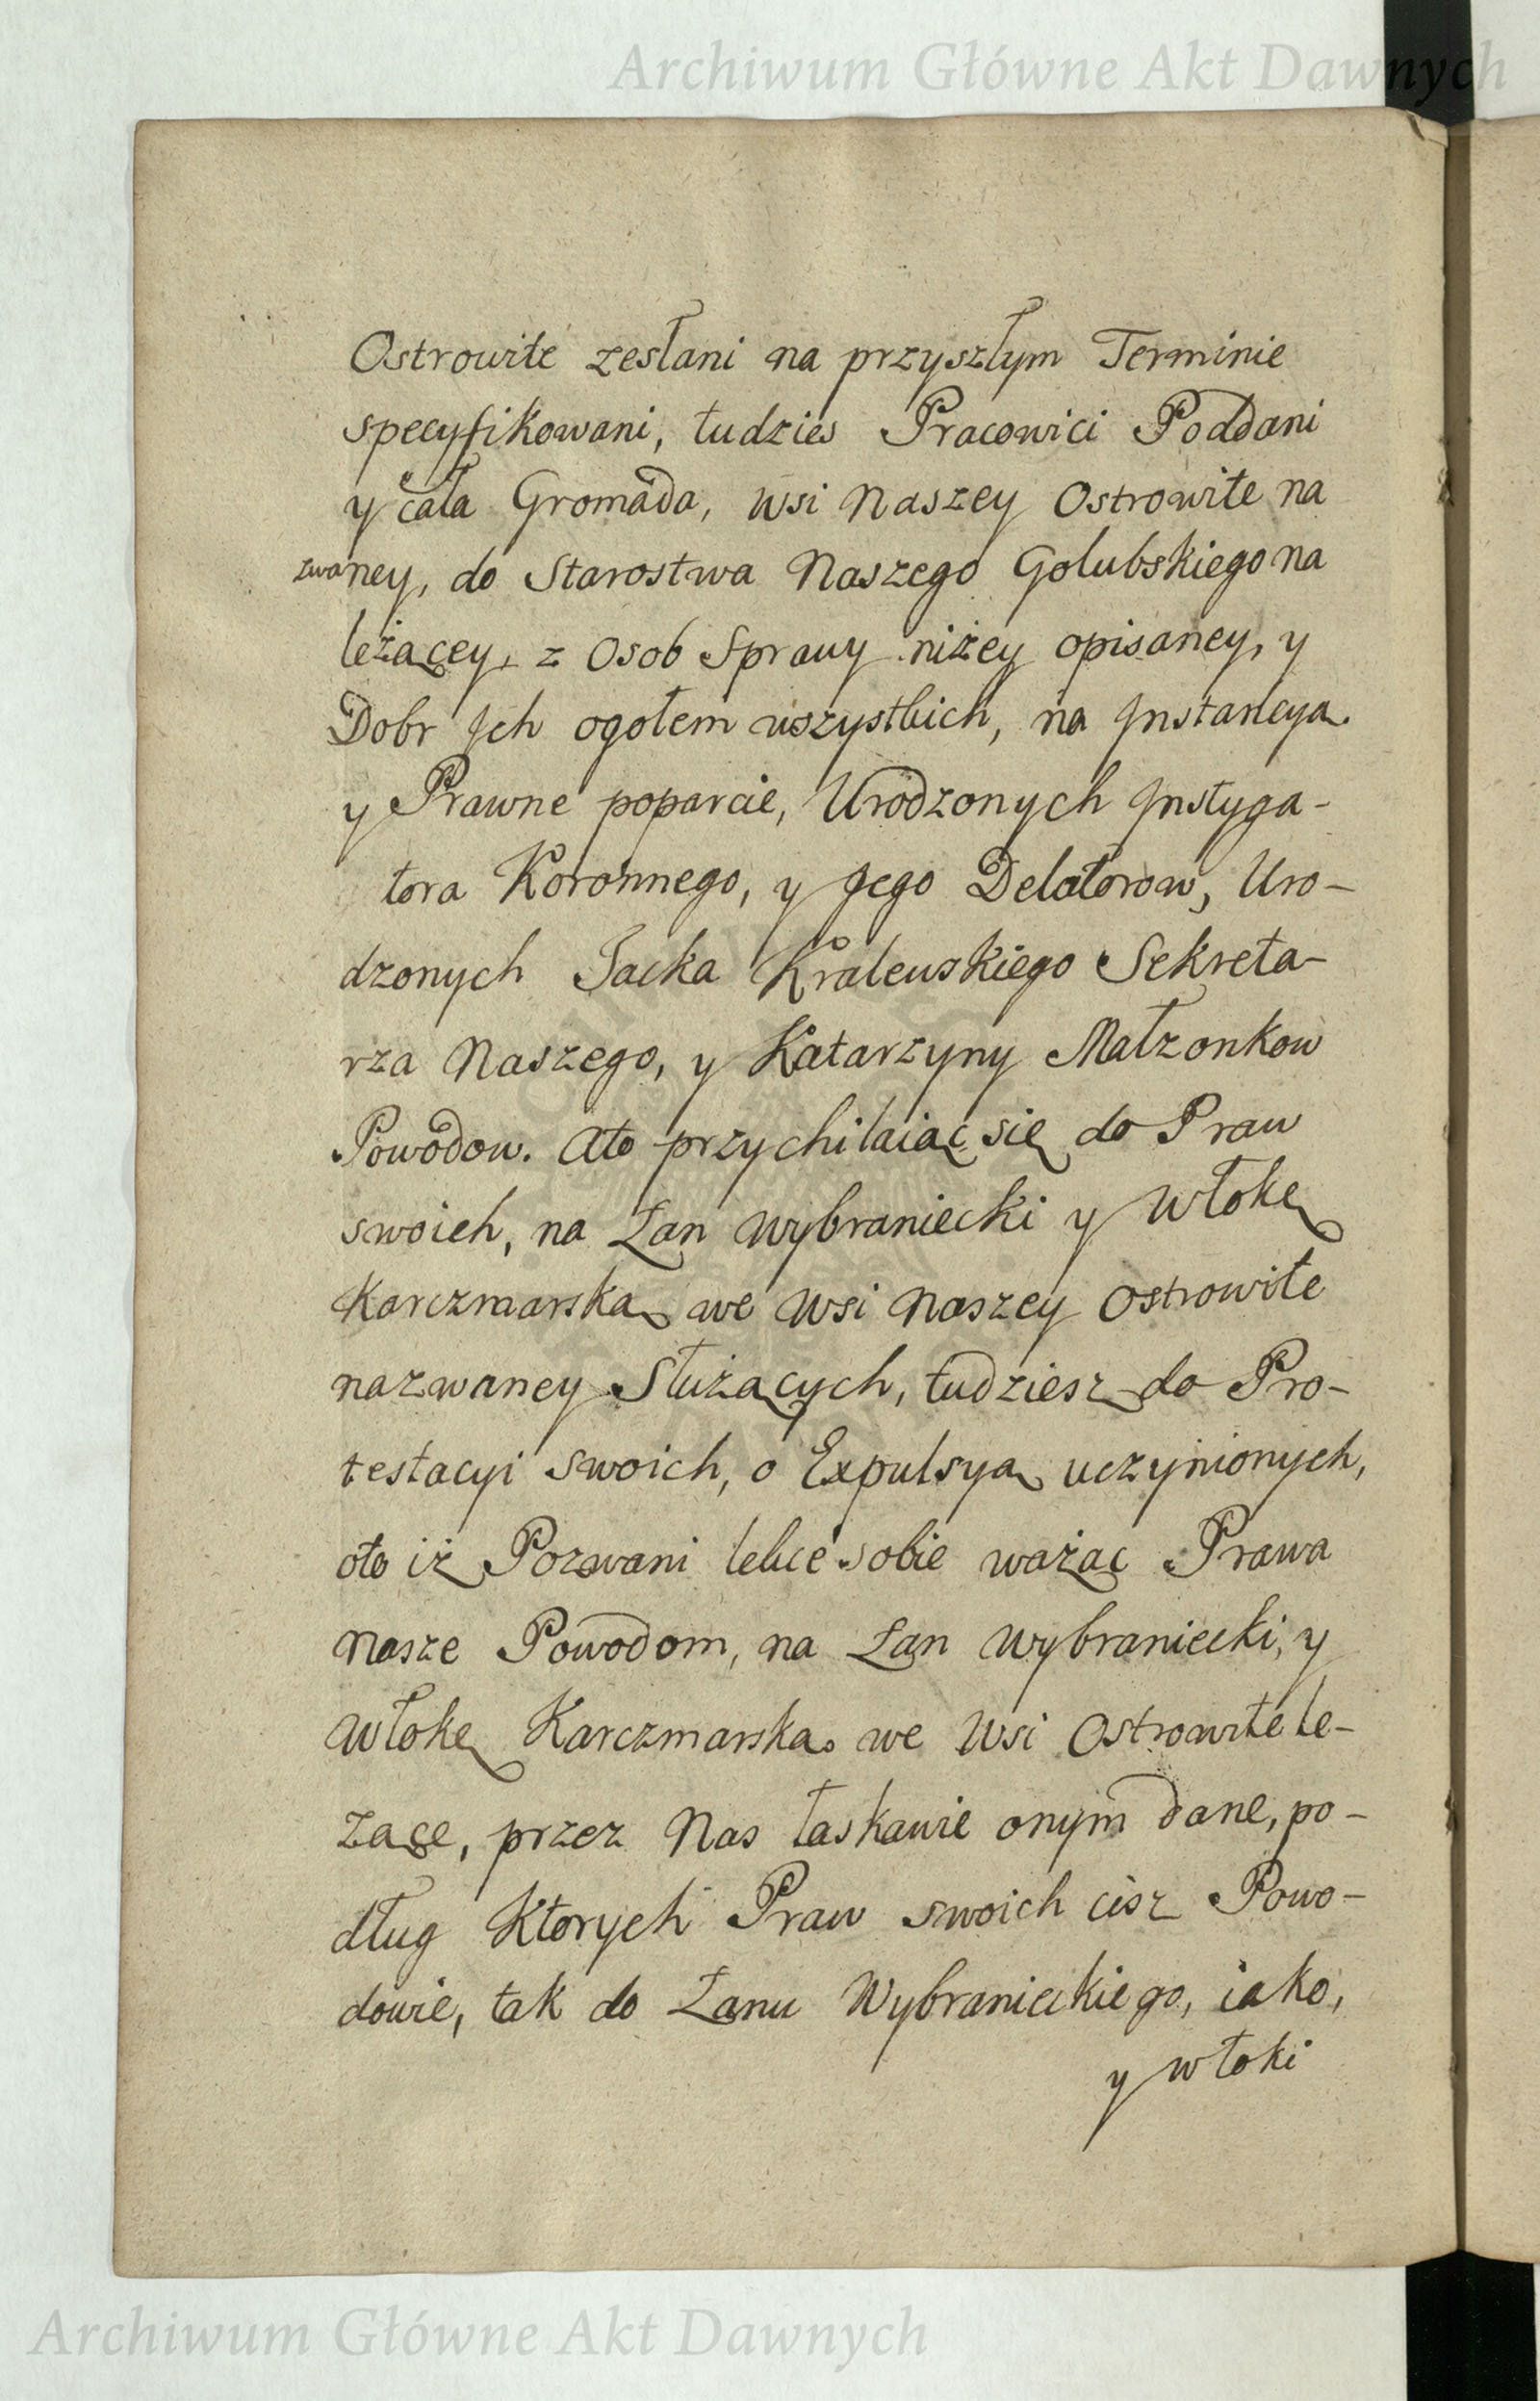 Archiwum Główne Akt Dawnych
Ostrowite zesłani na przyszłym Terminie
specyfikowani, tudzies Pracowici Poddani
y cała Gromada, wsi Naszey Ostrowite na
zwaney, do Starostwa Naszego Golubskiego na
leżącey, z Osob Sprawy niżey opisaney, y
Dobr Jch ogołem wszystkich, na Jnstancyą
y Prawne poparcie, Urodzonych Jnstyga-
tora Koronnego, y Jego Delatorow, Uro-
dzonych Jacka Kralewskiego Sekreta-
rza Naszego, y Katarzyny Małzonkow
Powodow. Ato przychilaiąc się do Praw
swoich, na Łan Wybraniecki y Włokę
Karczmarską we Wsi Naszey Ostrowite
nazwaney Służących, tudziesz do Pro-
testacyi swoich, o Expulsyą uczynionych,
oto iż Pozwani lekce sobie ważąc Prawa
Nasze Powodom, na Łan Wybraniecki, y
Włokę Karczmarską we Wsi Ostrowite le-
zące, przez Nas łaskawie onym dane, po-
dług Ktorych Praw swoich cisz Powo-
dowie, tak do Łanu Wybranieckiego, iako,
y włoki
Archiwum Główne Akt Dawnych